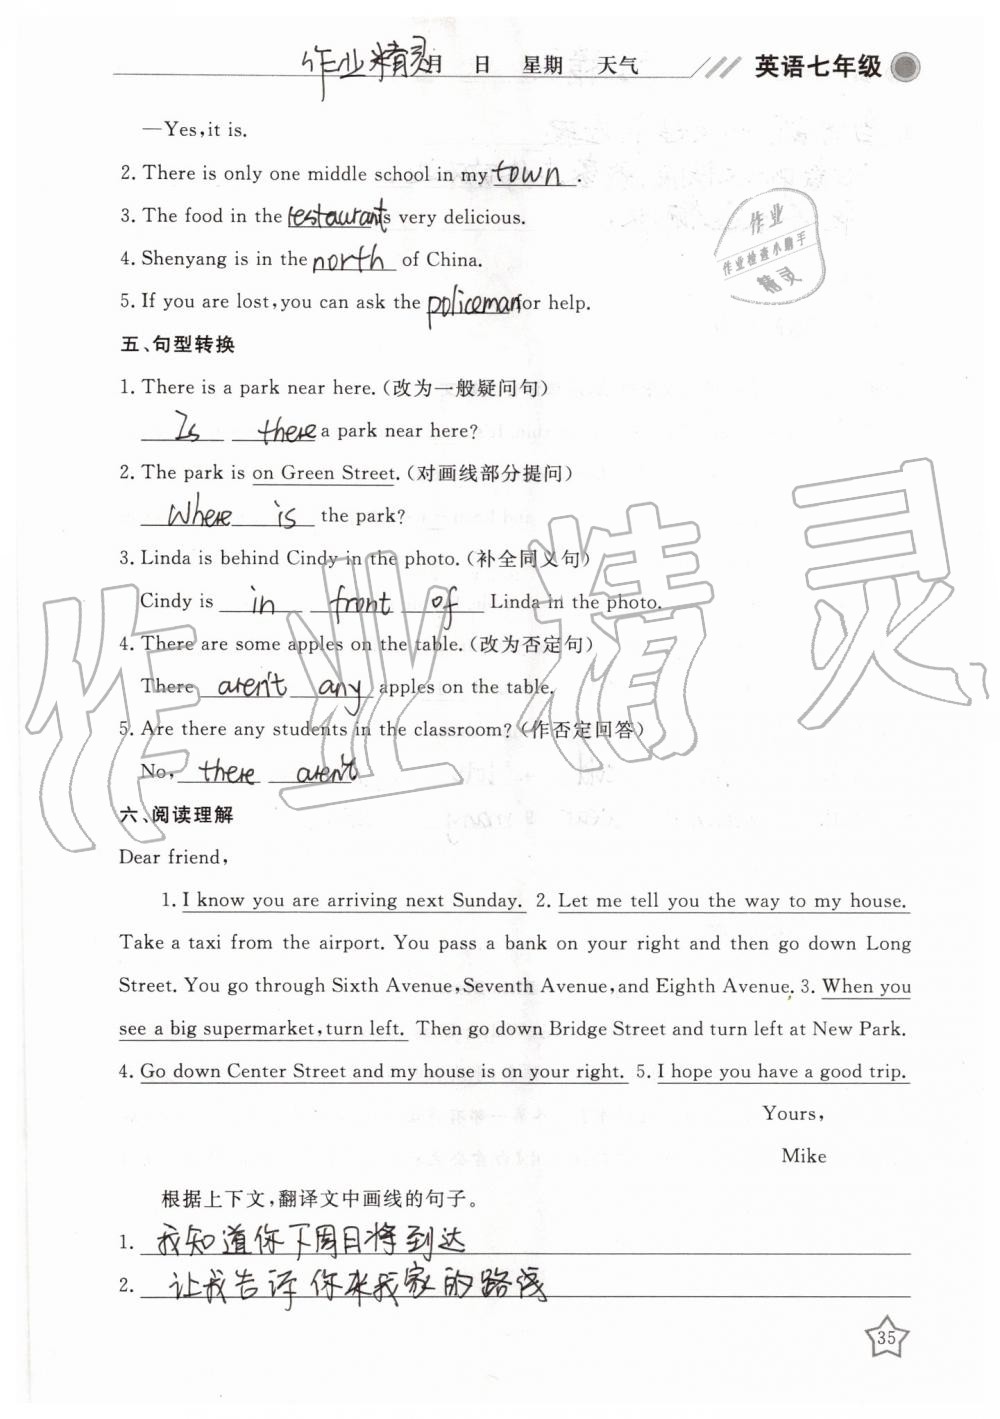 作业精灵月 日 星期 天气 英语七年级
—Yes,it is.
2. There is only one middle school in my town.
作业
作业检查小助手
精灵
3. The food in the restaurant is very delicious.
4. Shenyang is in the north of China.
5. If you are lost,you can ask the policeman for help.
五、句型转换
1. There is a park near here.(改为一般疑问句)
Is there a park near here?
2. The park is on Green Street.(对画线部分提问)
Where is the park?
3. Linda is behind Cindy in the photo.(补全同义句)
Cindy is in front of Linda in the photo.
4. There are some apples on the table.(改为否定句)
There aren't any apples on the table.
5. Are there any students in the classroom?(作否定回答)
No, there aren't
作业精灵
六、阅读理解
Dear friend,
1. I know you are arriving next Sunday. 2. Let me tell you the way to my house.
Take a taxi from the airport. You pass a bank on your right and then go down Long
Street. You go through Sixth Avenue,Seventh Avenue,and Eighth Avenue. 3. When you
see a big supermarket,turn left. Then go down Bridge Street and turn left at New Park.
4. Go down Center Street and my house is on your right. 5. I hope you have a good trip.
Yours,
Mike
根据上下文,翻译文中画线的句子。
1. 我知道你下周日将到达
2. 让我告诉你来我家的路线
35